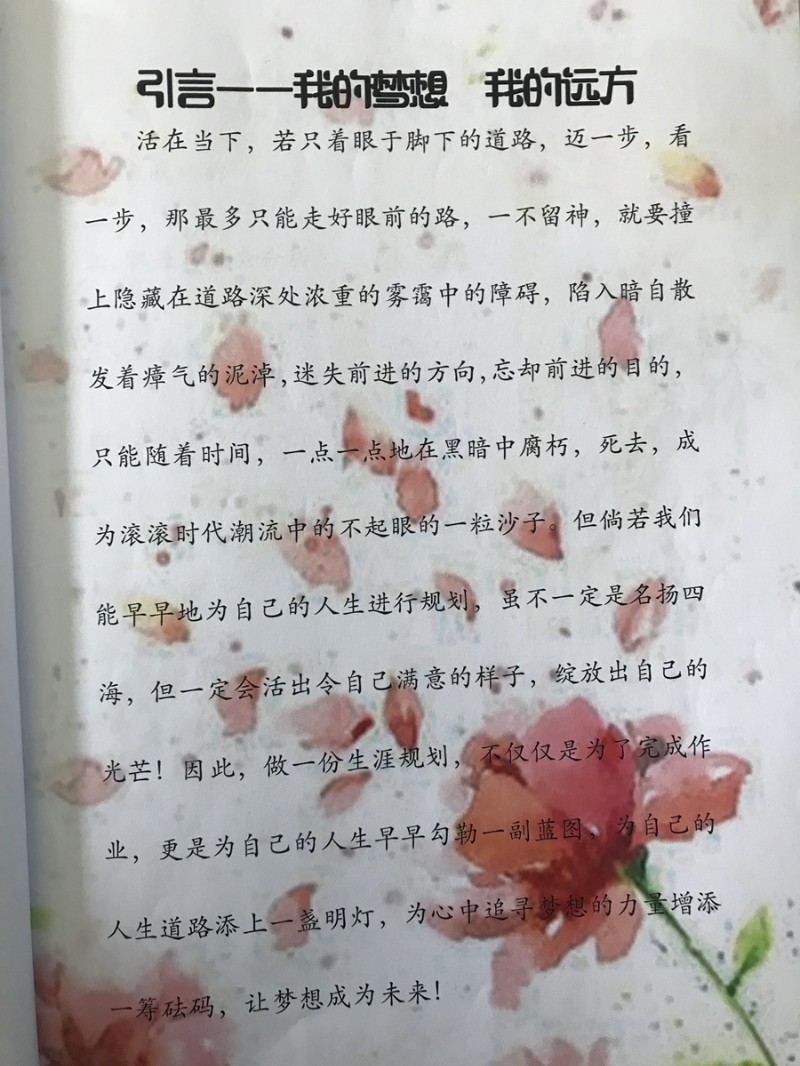 引言——我的梦想 我的远方
活在当下，若只着眼于脚下的道路，迈一步，看
一步，那最多只能走好眼前的路，一不留神，就要撞
上隐藏在道路深处浓重的雾霭中的障碍，陷入暗自散
发着瘴气的泥淖,迷失前进的方向,忘却前进的目的，
只能随着时间，一点一点地在黑暗中腐朽，死去，成
为滚滚时代潮流中的不起眼的一粒沙子。但倘若我们
能早早地为自己的人生进行规划，虽不一定是名扬四
海，但一定会活出令自己满意的样子，绽放出自己的
光芒！因此，做一份生涯规划，不仅仅是为了完成作
业，更是为自己的人生早早勾勒一副蓝图，为自己的
人生道路添上一盏明灯，为心中追寻梦想的力量增添
一筹砝码，让梦想成为未来！